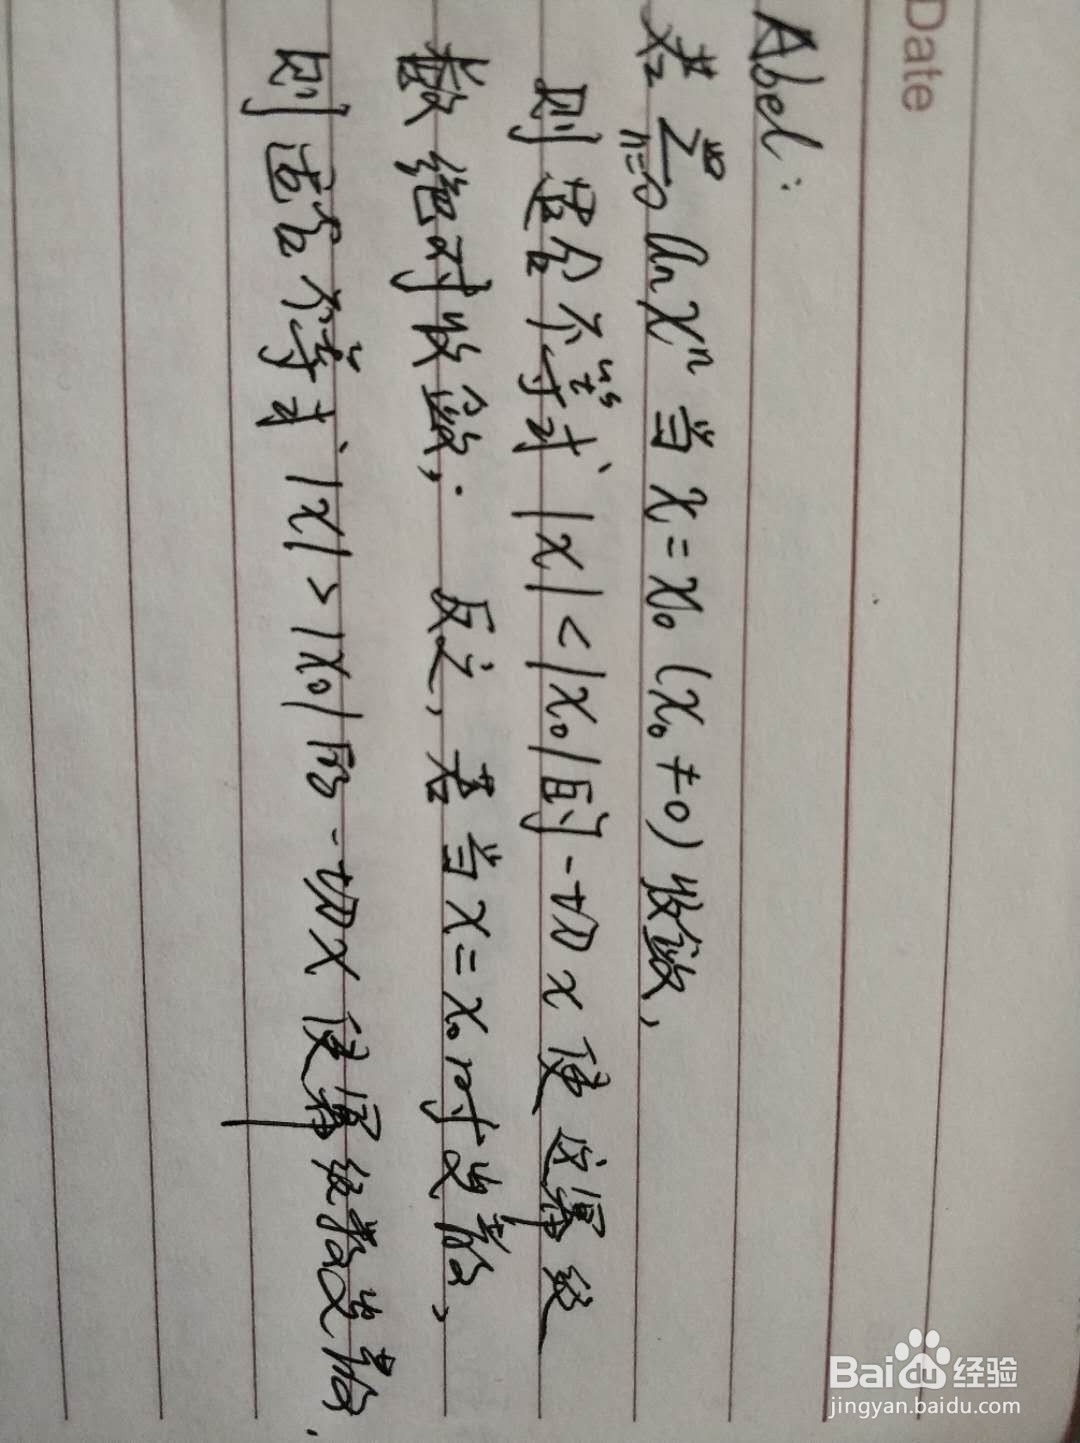 Date
Abel:
若 ∑_{n=0}^{∞} aₙxⁿ 当 x=x₀ (x₀≠0) 收敛,
则 适合不等式 |x|<|x₀| 的一切x 使这幂级
数 绝对收敛, 反之, 若当 x=x₀时发散,
则适合不等式 |x|>|x₀| 的一切x 使幂级数发散.
Baidu 经验
jingyan.baidu.com